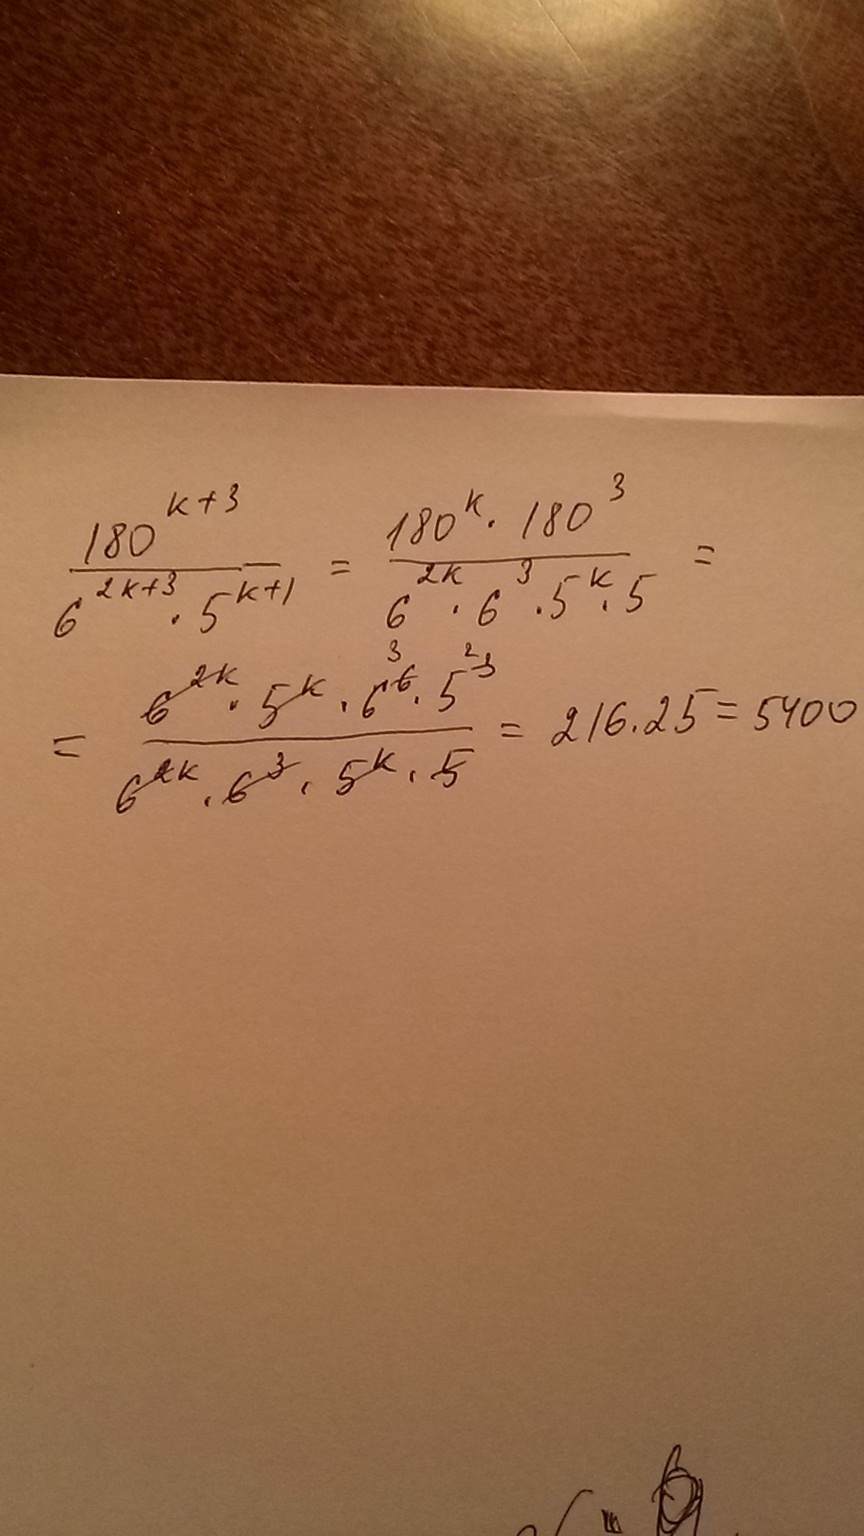 180^(k+3) / (6^(2k+3) · 5^(k+1)) = (180^k · 180^3) / (6^(2k) · 6^3 · 5^k · 5) =
= (6^(2k) · 5^k · 6^6 3 · 5^3 2) / (6^(2k) · 6^3 · 5^k · 5) = 216 · 25 = 5400